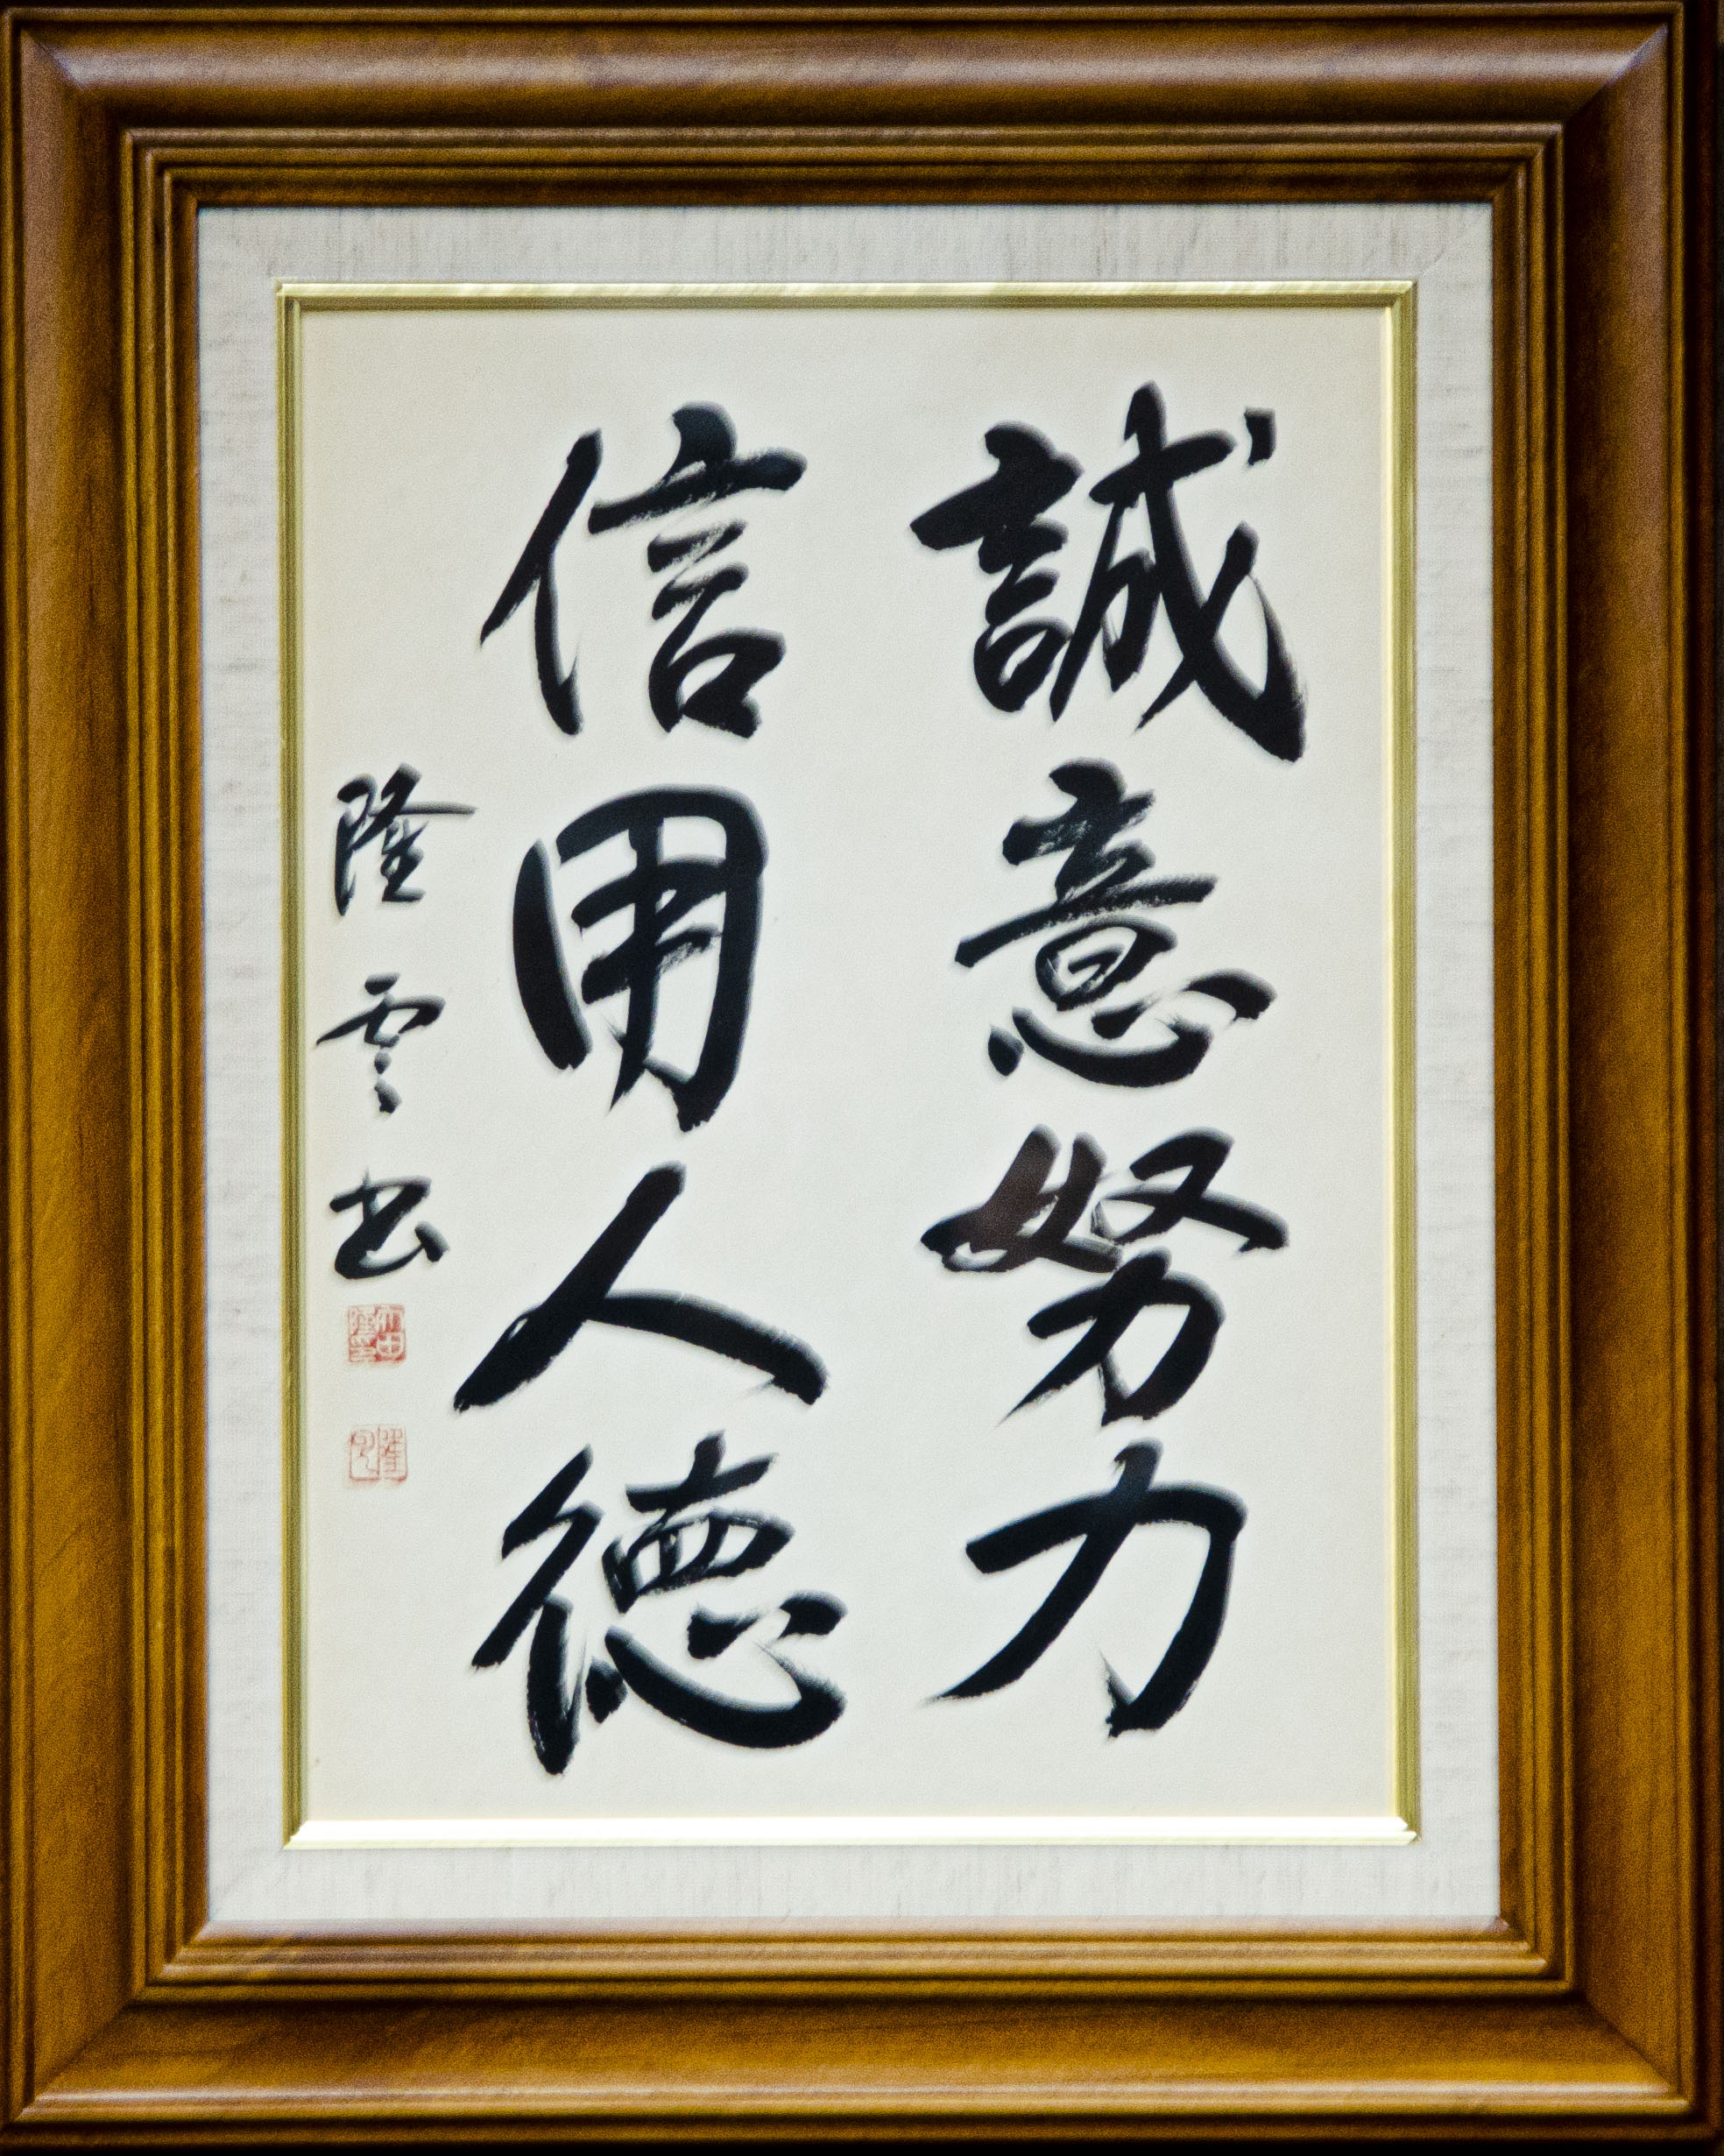 誠意努力
信用人徳
隆雲书